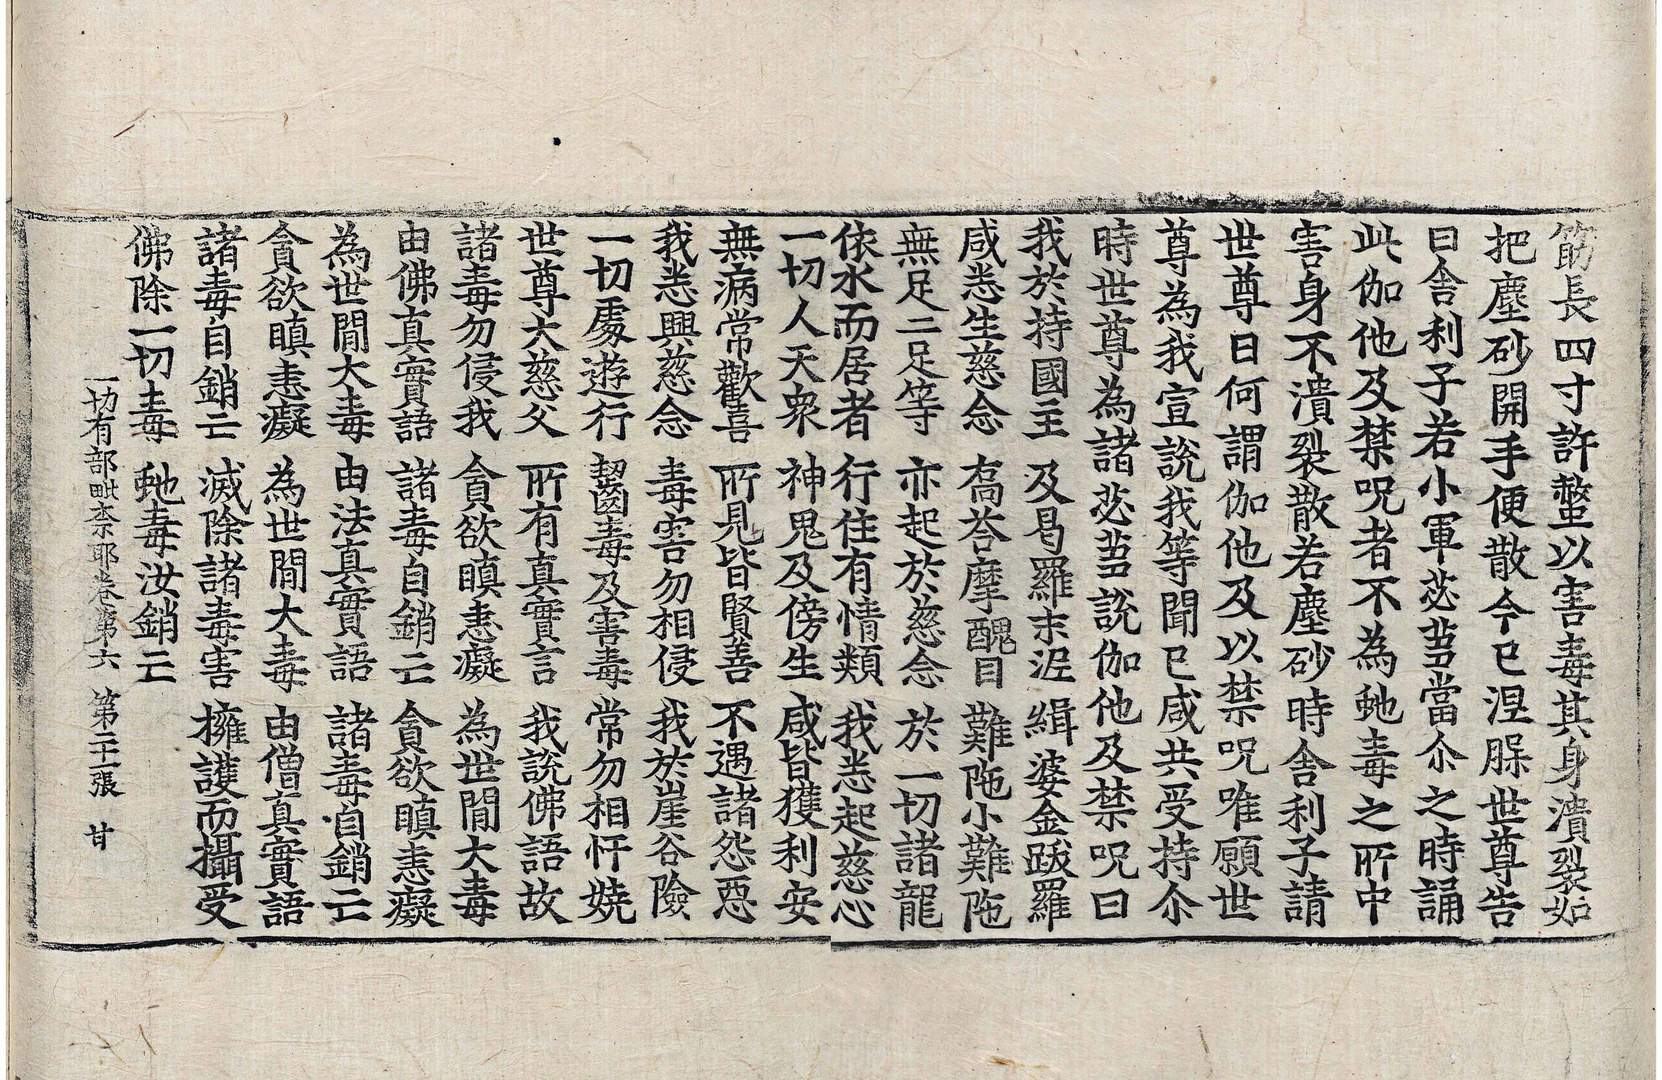 筯長四寸許螫以害毒其身潰裂如
把塵砂開手便散今已涅脲世尊告
曰舍利子若小軍苾芻當尒之時誦
此伽他及禁呪者不為虵毒之所中
害身不潰裂散若塵砂時舍利子請
世尊曰何謂伽他及以禁呪唯願世
尊為我宣說我等聞已咸共受持尒
時世尊為諸苾芻說伽他及禁呪曰
我於持國主　及曷羅末泥　緝婆金跋羅
咸悉生慈念　喬荅摩醜目　難陁小難陁
無足二足等　亦起於慈念　於一切諸龍
依水而居者　行住有情類　我悉起慈心
一切人天衆　神鬼及傍生　咸皆獲利安
無病常歡喜　所見皆賢善　不遇諸怨惡
我悉興慈念　毒害勿相侵　我於崖谷險
一切處遊行　齧毒及害毒　常勿相忓嬈
世尊大慈父　所有真實言　我說佛語故
諸毒勿侵我　貪欲瞋恚癡　為世間大毒
由佛真實語　諸毒自銷亡　貪欲瞋恚癡
為世間大毒　由法真實語　諸毒自銷亡
貪欲瞋恚癡　為世間大毒　由僧真實語
諸毒自銷亡　滅除諸毒害　擁護而攝受
佛除一切毒　虵毒汝銷亡
一切有部毗柰耶卷第六　第二十一張　甘